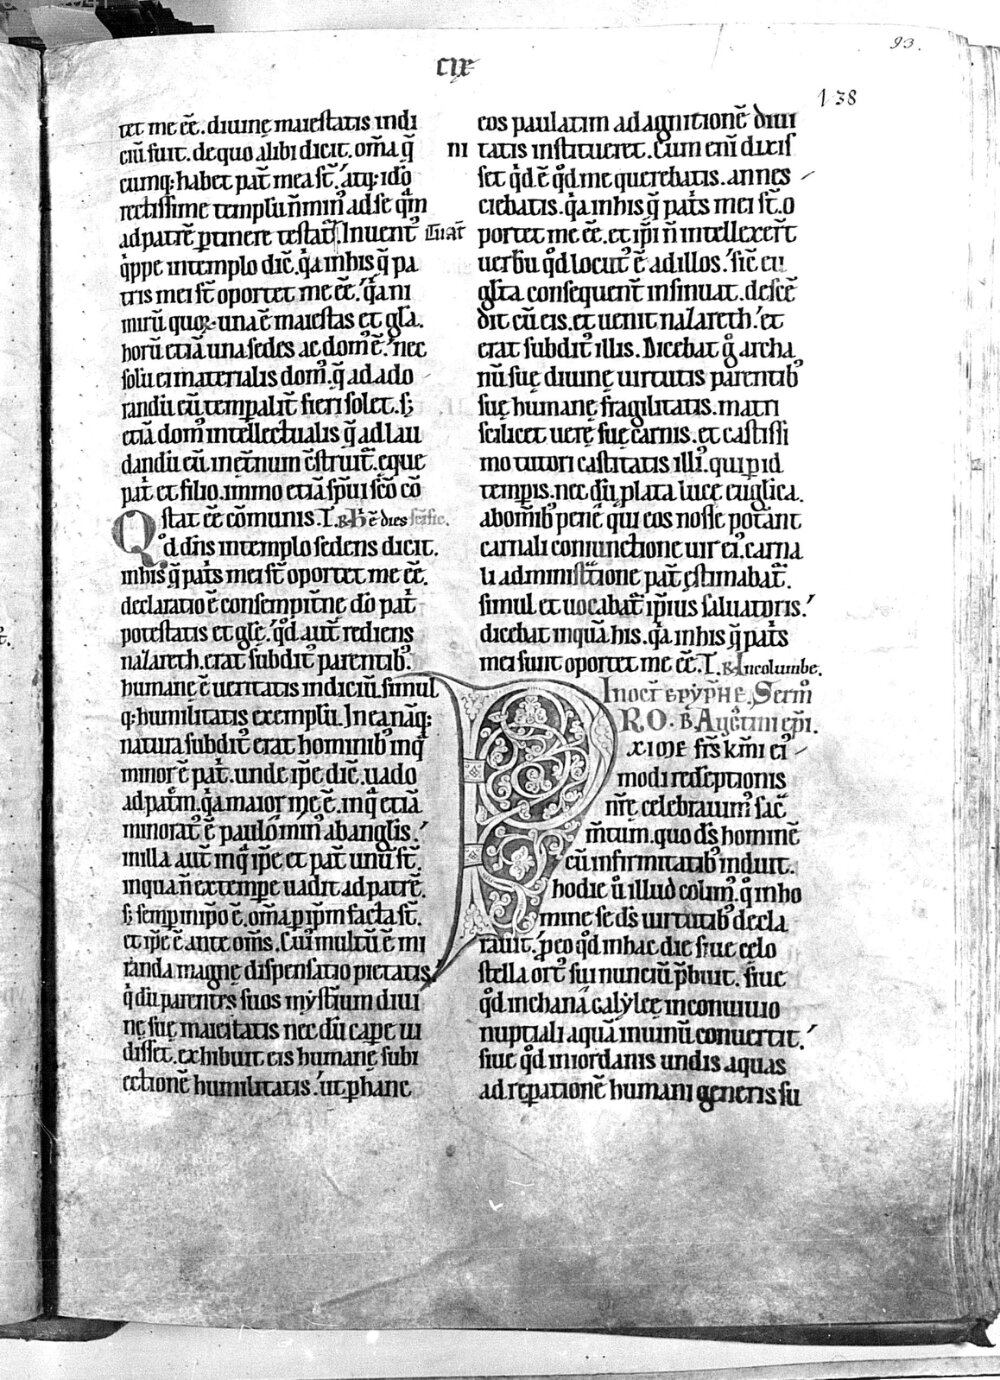 93.
CIX
138
tet me eē. diuinę maiestatis indi
ciū fuit. de quo alibi dicit. om̄a q̄
cumq; habet pat̄ mea st̄. atq; idō
rectissime templū n̄ min' ad se q̄m
ad patrē ptinere testat̄. Inuent'
q̇ppe in templo dic̄. q̇a in his q̄ pa
tris mei st̄ oportet me eē. q̇a ni
mirū quoꝝ una ē maiestas et gl̄a.
horū etiā una sedes ac dom' ē. nec
solū ei materialis dom'. q̄ ad ado
randū eū temporalit̄ fieri solet. s;
etiā dom' intellectualis q̄ ad lau
dandū eū in et̄num c̄struit̄. eque
pat̄ et filio. immo etiā sp̄ui sc̄o cō
stat eē cōmunis. T.
Qd dn̄s in templo sedens dicit.
in his q̄ patris mei st̄ oportet me eē.
declaratio ē consempit̄nę dō pat̄
potestatis et glę. q̇d aut̄ rediens
nazareth. erat subdit' parentib'.
humanę ē ueritatis indiciū. simul
q; humilitatis exemplū. In ea nāq;
natura subdit' erat hominib' in q̄
minor ē pat̄. unde ip̄e dic̄. uado
ad patr̄m. q̇a maior me ē. in q̄ etiā
minorat' ē paulomin' ab angl̄is.
in illa aut̄ in q̄ ip̄e et pat̄ unū st̄.
in qua n̄ ex tempe uadit ad patrē.
s; semp in ip̄o ē. om̄a p ip̄m facta st̄.
et ip̄e ē ante om̄s. Cui' multū ē mi
randa magnę dispensatio pietatis.
q̇ dū parentes suos mysteriū diui
nę suę maiestatis nec dū cape ui
disset. exhibuit eis humanę subi
ectionē humilitatis. ut p hanc
eos paulatim ad agnitionē diui
ni tatis institueret. Cum eni dixis
set q̇d ē q̇d me querebatis. an nes
ciebatis. q̇a in his q̄ patris mei st̄. o
portet me eē. et ip̄i n̄ intellexer̄t
uerbū q̇d locut' ē ad illos. sic eu
gl̄ista consequent̄ insinuat. descē
dit cū eis. et uenit nazareth. et
erat subdit' illis. Dicebat g̊ archa
nū suę diuinę uirtutis parentib'
suę humanę fragilitatis. matri
scilicet uerę suę carnis. et castissi
mo tutori castitatis illi'. qui p id
tempis. nec dū plata luce euglica.
ab omib' penē qui eos nosse poterant
carnali coniunctione uir ei'. carna
li administratione pat̄ estimabat̄.
simul et uocabat̄ ipsius saluatoris.
dicebat inquā his. q̇a in his q̄ patris
mei sunt oportet me eē. T. Incolumbe.
In oct̄ epyphe. Sermo
B. Augustini epi.
PROXIME frs̄ kmi ei'
modi redēptionis
nr̄ę celebrauim' sac̄
m̄tum. quo ds̄ hominē
cū infirmitatib' induit.
hodie ů illud colim'. q̊ in ho
mine se ds̄ uirtutib' decla
rauit. p eo q̇d in hac die siue cęlo
stella ort' sui nunciū p̄buit. siue
q̇d in chana galylęę in conuiuio
nuptiali aquā in uinū conuertit.
siue q̇d in iordanis undis aquas
ad repationē humani generis su